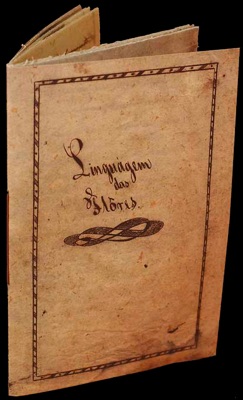 Linguágem
das
Flôres.